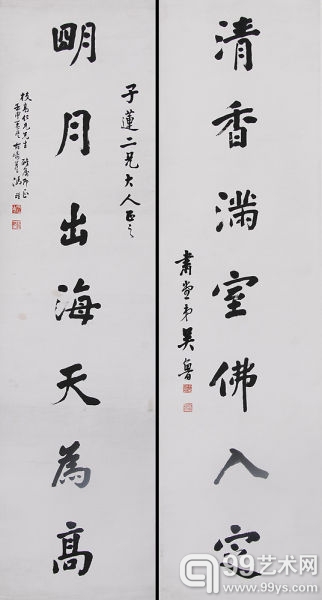 清香滿室佛入定
肅堂弟吳魯
明月出海天為高
子蓮二兄大人正之
99艺术网
www.99ys.com